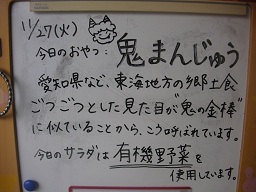 11/27(火)
今日のおやつ:鬼まんじゅう
愛知県など、東海地方の郷土食
ごつごつとした見た目が"鬼の金棒"
に似ていることから、こう呼ばれています。
今日のサラダは有機野菜を
使用しています。